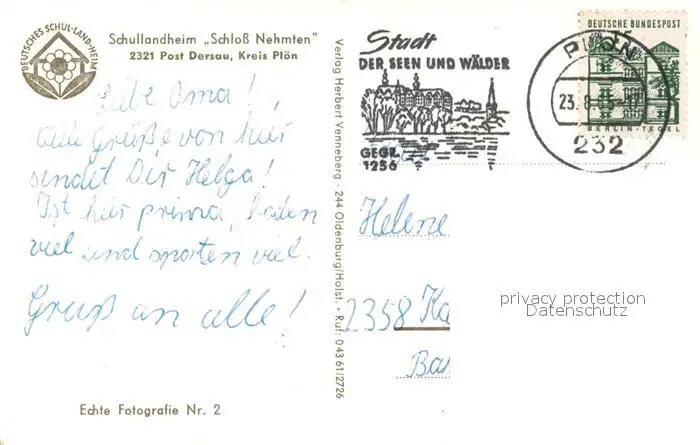 DEUTSCHES SCHUL-LAND-HEIM
Schullandheim „Schloß Nehmten"
2321 Post Dersau, Kreis Plön
Liebe Oma!
viele Grüße von hier
sendet Dir Helga!
Ist hier prima, baden
viel und sporten viel.
Gruß an alle!
Echte Fotografie Nr. 2
Verlag Herbert Venneberg · 244 Oldenburg/Holst. · Ruf: 04361/2726
Stadt
DER SEEN UND WÄLDER
GEGR.
1256
DEUTSCHE BUNDESPOST
15
BERLIN-TEGEL
PLÖN
23.8.65-17
232
Helene
2358 Ka
Ba
privacy protection
Datenschutz